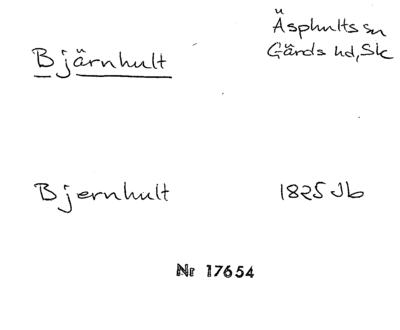 Bjärnhult
Äsphults sn
Gärds hd, Sk
Bjernhult
1825 Jb
Nr 17654